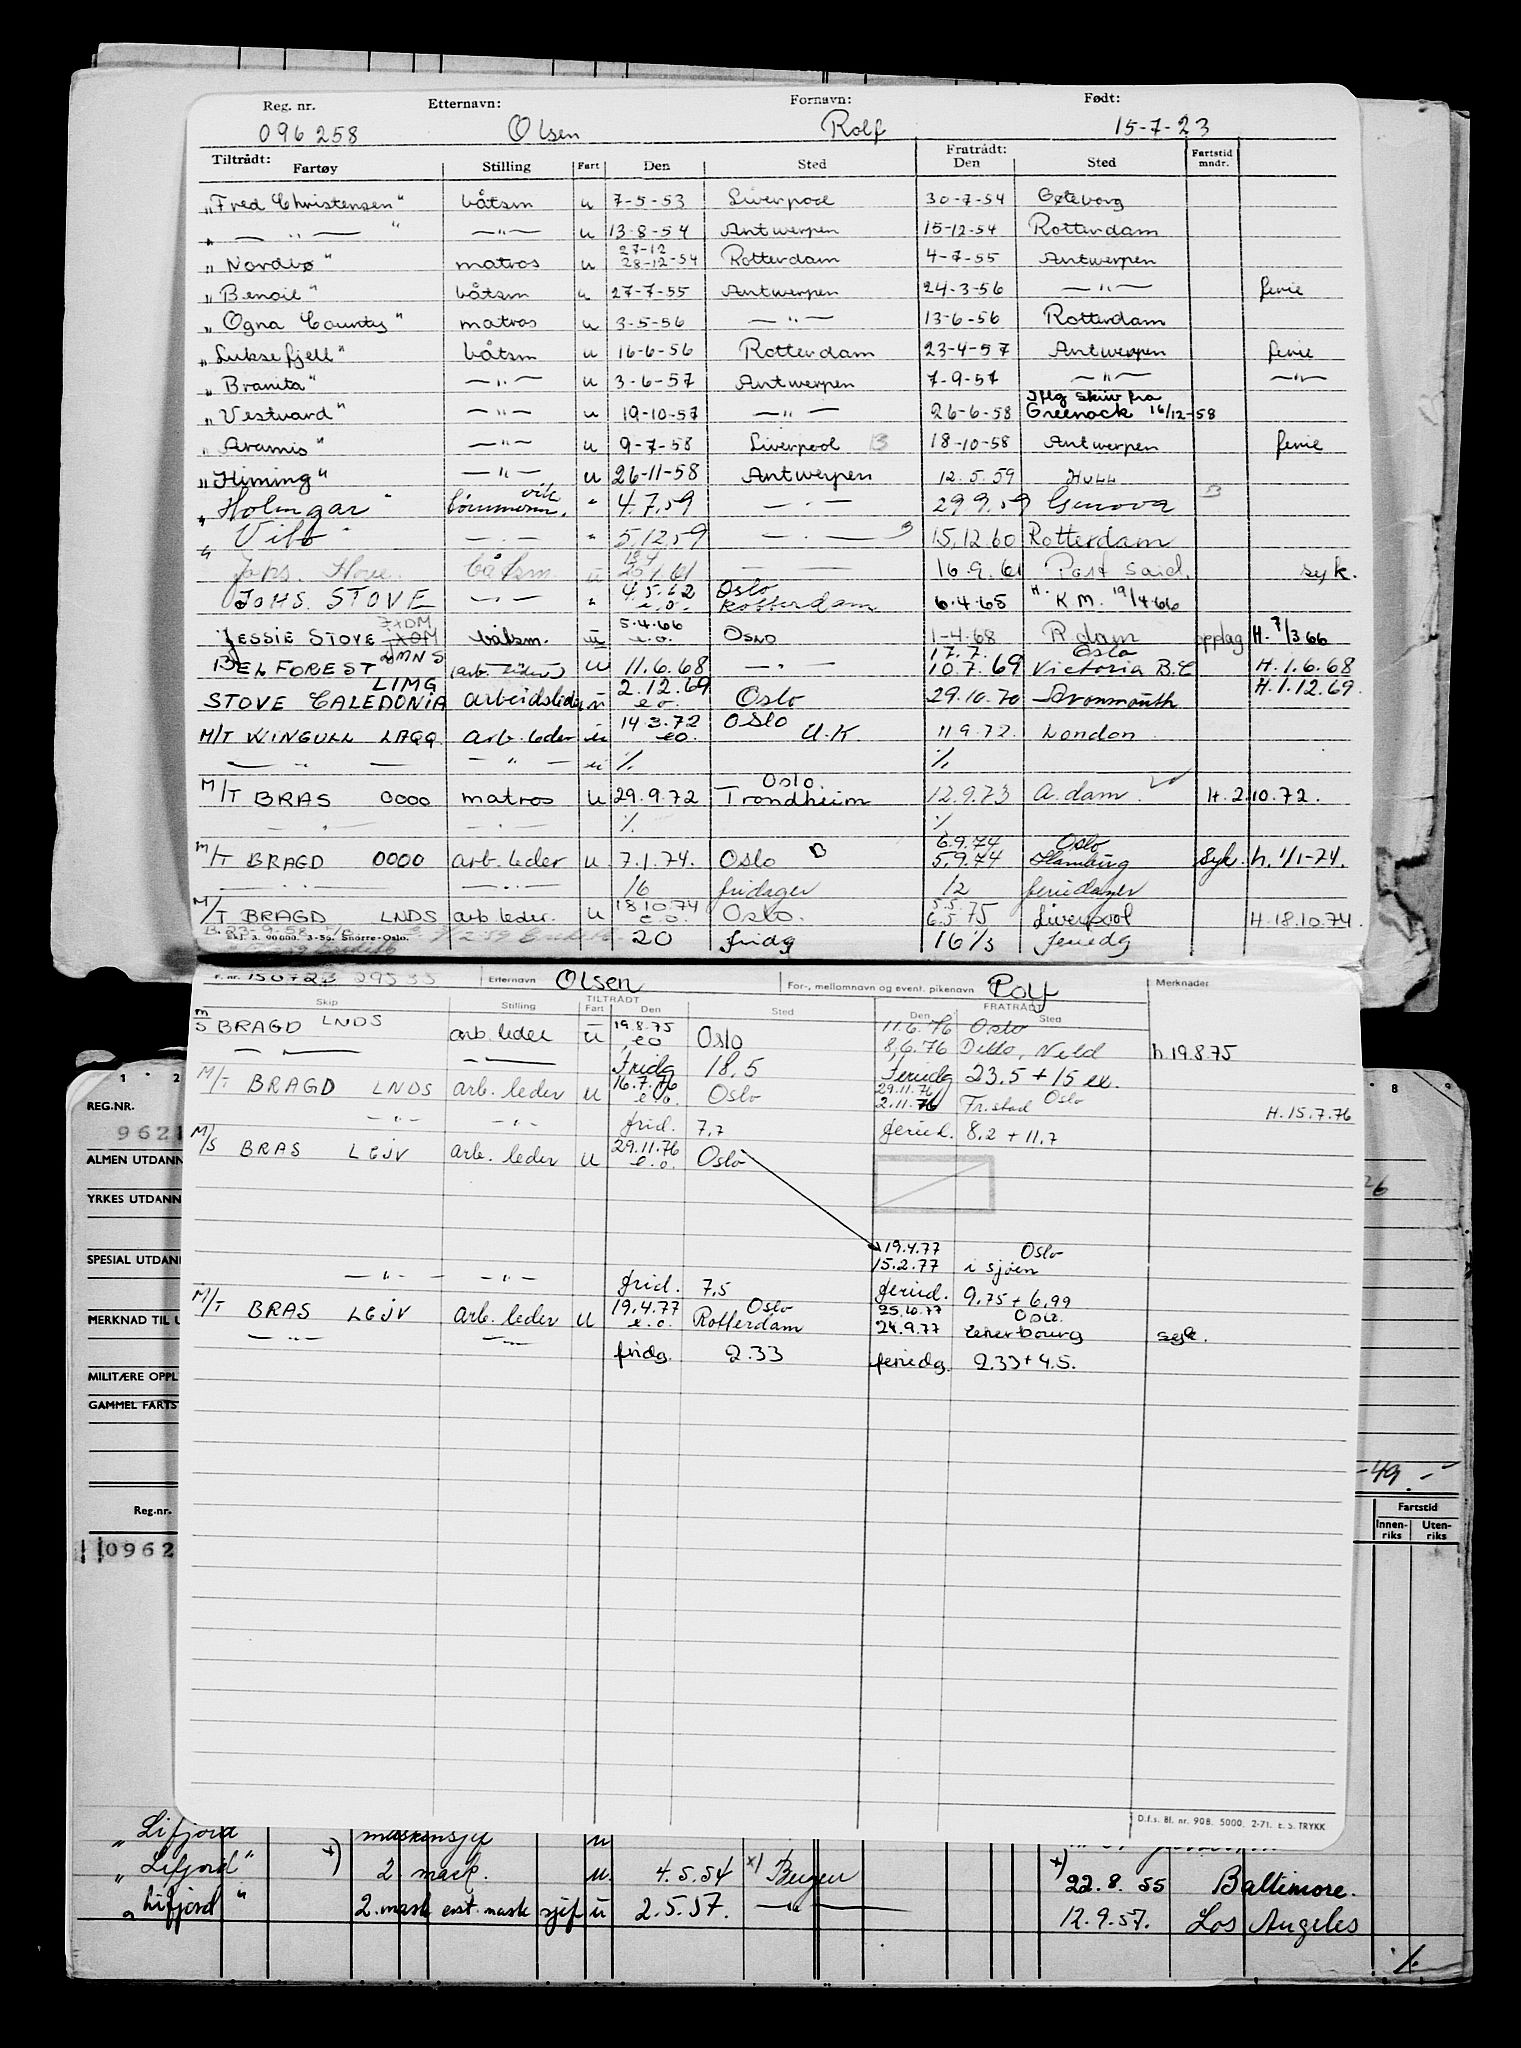 Reg. nr. Etternavn: Fornavn: Født:
096258 Olsen Rolf 15-7-23
Tiltrådt: Fratrådt: Fartstid mndr.
Fartøy Stilling Fart Den Sted Den Sted
"Fred Christensen" båtsm u 7-5-53 Liverpool 30-7-54 Gøteborg
" — " — " — " — u 13-8-54 Antwerpen 15-12-54 Rotterdam
27-12
"Nordbø" matros u 28-12-54 Rotterdam 4-7-55 Antwerpen
"Benoil" båtsm u 27-7-55 Antwerpen 24-3-56 — " — ferie
"Ogna County" matros u 3-5-56 — " — 13-6-56 Rotterdam
"Luksefjell" båtsm u 16-6-56 Rotterdam 23-4-57 Antwerpen ferie
"Branita" — " — u 3-6-57 Antwerpen 7-9-57 — " — — " —
Iflg skriv fra
"Vestvard" — " — u 19-10-57 — " — 26-6-58 Greenock 16/12-58
"Aramis" — " — u 9-7-58 Liverpool B 18-10-58 Antwerpen ferie
"Himing" — " — u 26-11-58 Antwerpen 12.5.59 HULL
"Holmgar" tømmerm. vik " 4.7.59 — " — 29 9.59 Genova B
" — . — " 5.12.59 — . — B 15.12.60 Rotterdam
Johs. Stove båtsm. u 25.1.61 — — 16.9.61 Port Said. syk.
JOHS. STOVE — . — " 4.5.62 e.o. Oslo Rotterdam 6.4.65 H. K M. 19/4 66
JESSIE STOVE båtsm. u 5.4.66 e.o. OSLO 1-4.68 R dam opplag H. 7/3 66
17.7. Oslo
BELFOREST LMNS (arb. leder) u 11.6.68 — . — 10.7.69 Victoria B.C H.1.6.68
STOVE CALEDONIA LIMG arbeidsleder u 2.12.69 e.o. Oslo 29.10.70 Avonmouth H.1.12.69.
M/T KINGULL LAGQ arb. leder u 14.3.72 e.o. OSLO U.K 11 9.72 London
— " — — " — u % %
M/T BRAS 0000 matros u 29.9.72 Oslo. Trondheim 12.9.73 A.dam H.2.10.72.
— . — — . — % %
6.9.74 Oslo
M/T BRAGD 0000 arb. leder u 7.1.74. Oslo B 5.9.74 Hamburg Syk. h. 1/1-74.
— . — — . — 16 fridager 12 feriedager
M/T BRAGD LNDS arb. leder. u 18 10.74 e.o. Oslo. 5.5. 6.5.75 Liverpool H.18.10.74.
B. 23-9-58
Skj. 3. 90 000. 3-56. Snorre-Oslo. 20 fridg 16 1/3 feriedg
F. nr. 150723 29535 Etternavn Olsen For-, mellomnavn og event. pikenavn Rolf Merknader
TILTRÅDT FRATRÅDT
Skip Stilling Fart Den Sted Den Sted
m/s BRAGD LNDS arb. leder u 19.8.75 e o Oslo 11.6.76 Oslo
— — 8.6.76 h.19.8.75
Fridg 18.5 Feriedg 23.5 + 15 ex.
M/T BRAGD LNDS arb. leder u 16.7.76 e.o. Oslo 29.11.76 Oslo 2.11.76 Fr.stad H.15.7.76
— " — — " — frid. 7,7 feried. 8.2 + 11.7
M/S BRAS LGJV arb. leder u 29.11.76 e.o. Oslo
19.4.77 Oslo
15.2.77 i sjøen
— " — — " — frid. 7,5 feried. 9.75 + 6,99
M/T BRAS LGJV arb. leder u 19.4.77 e.o. Oslo Rotterdam 25.10.77 Oslo 24.9.77 Cherbourg syk.
— " — — " — fridg. 2.33 feriedg. 2.33 + 4.5.
D.f.s. Bl. nr. 90B. 5000. 2-71. E. S. TRYKK
1 2 8 9
REG.NR.
9621
ALMEN UTDANN
YRKES UTDANN 26
SPESIAL UTDANN
MERKNAD TIL U
MILITÆRE OPPL
GAMMEL FARTS
-49.-
Reg.nr. Fartstid
Innen-riks Uten-riks
0962
"Lifjord maskinsjef u
"Lifjord" x) 2 mask. u. 4.5.54 x) Bergen x) 22.8.55 Baltimore.
"Lifjord" 2.mask erst. mask sjef u 2.5.57. — " — 12.9.57. Los Angeles